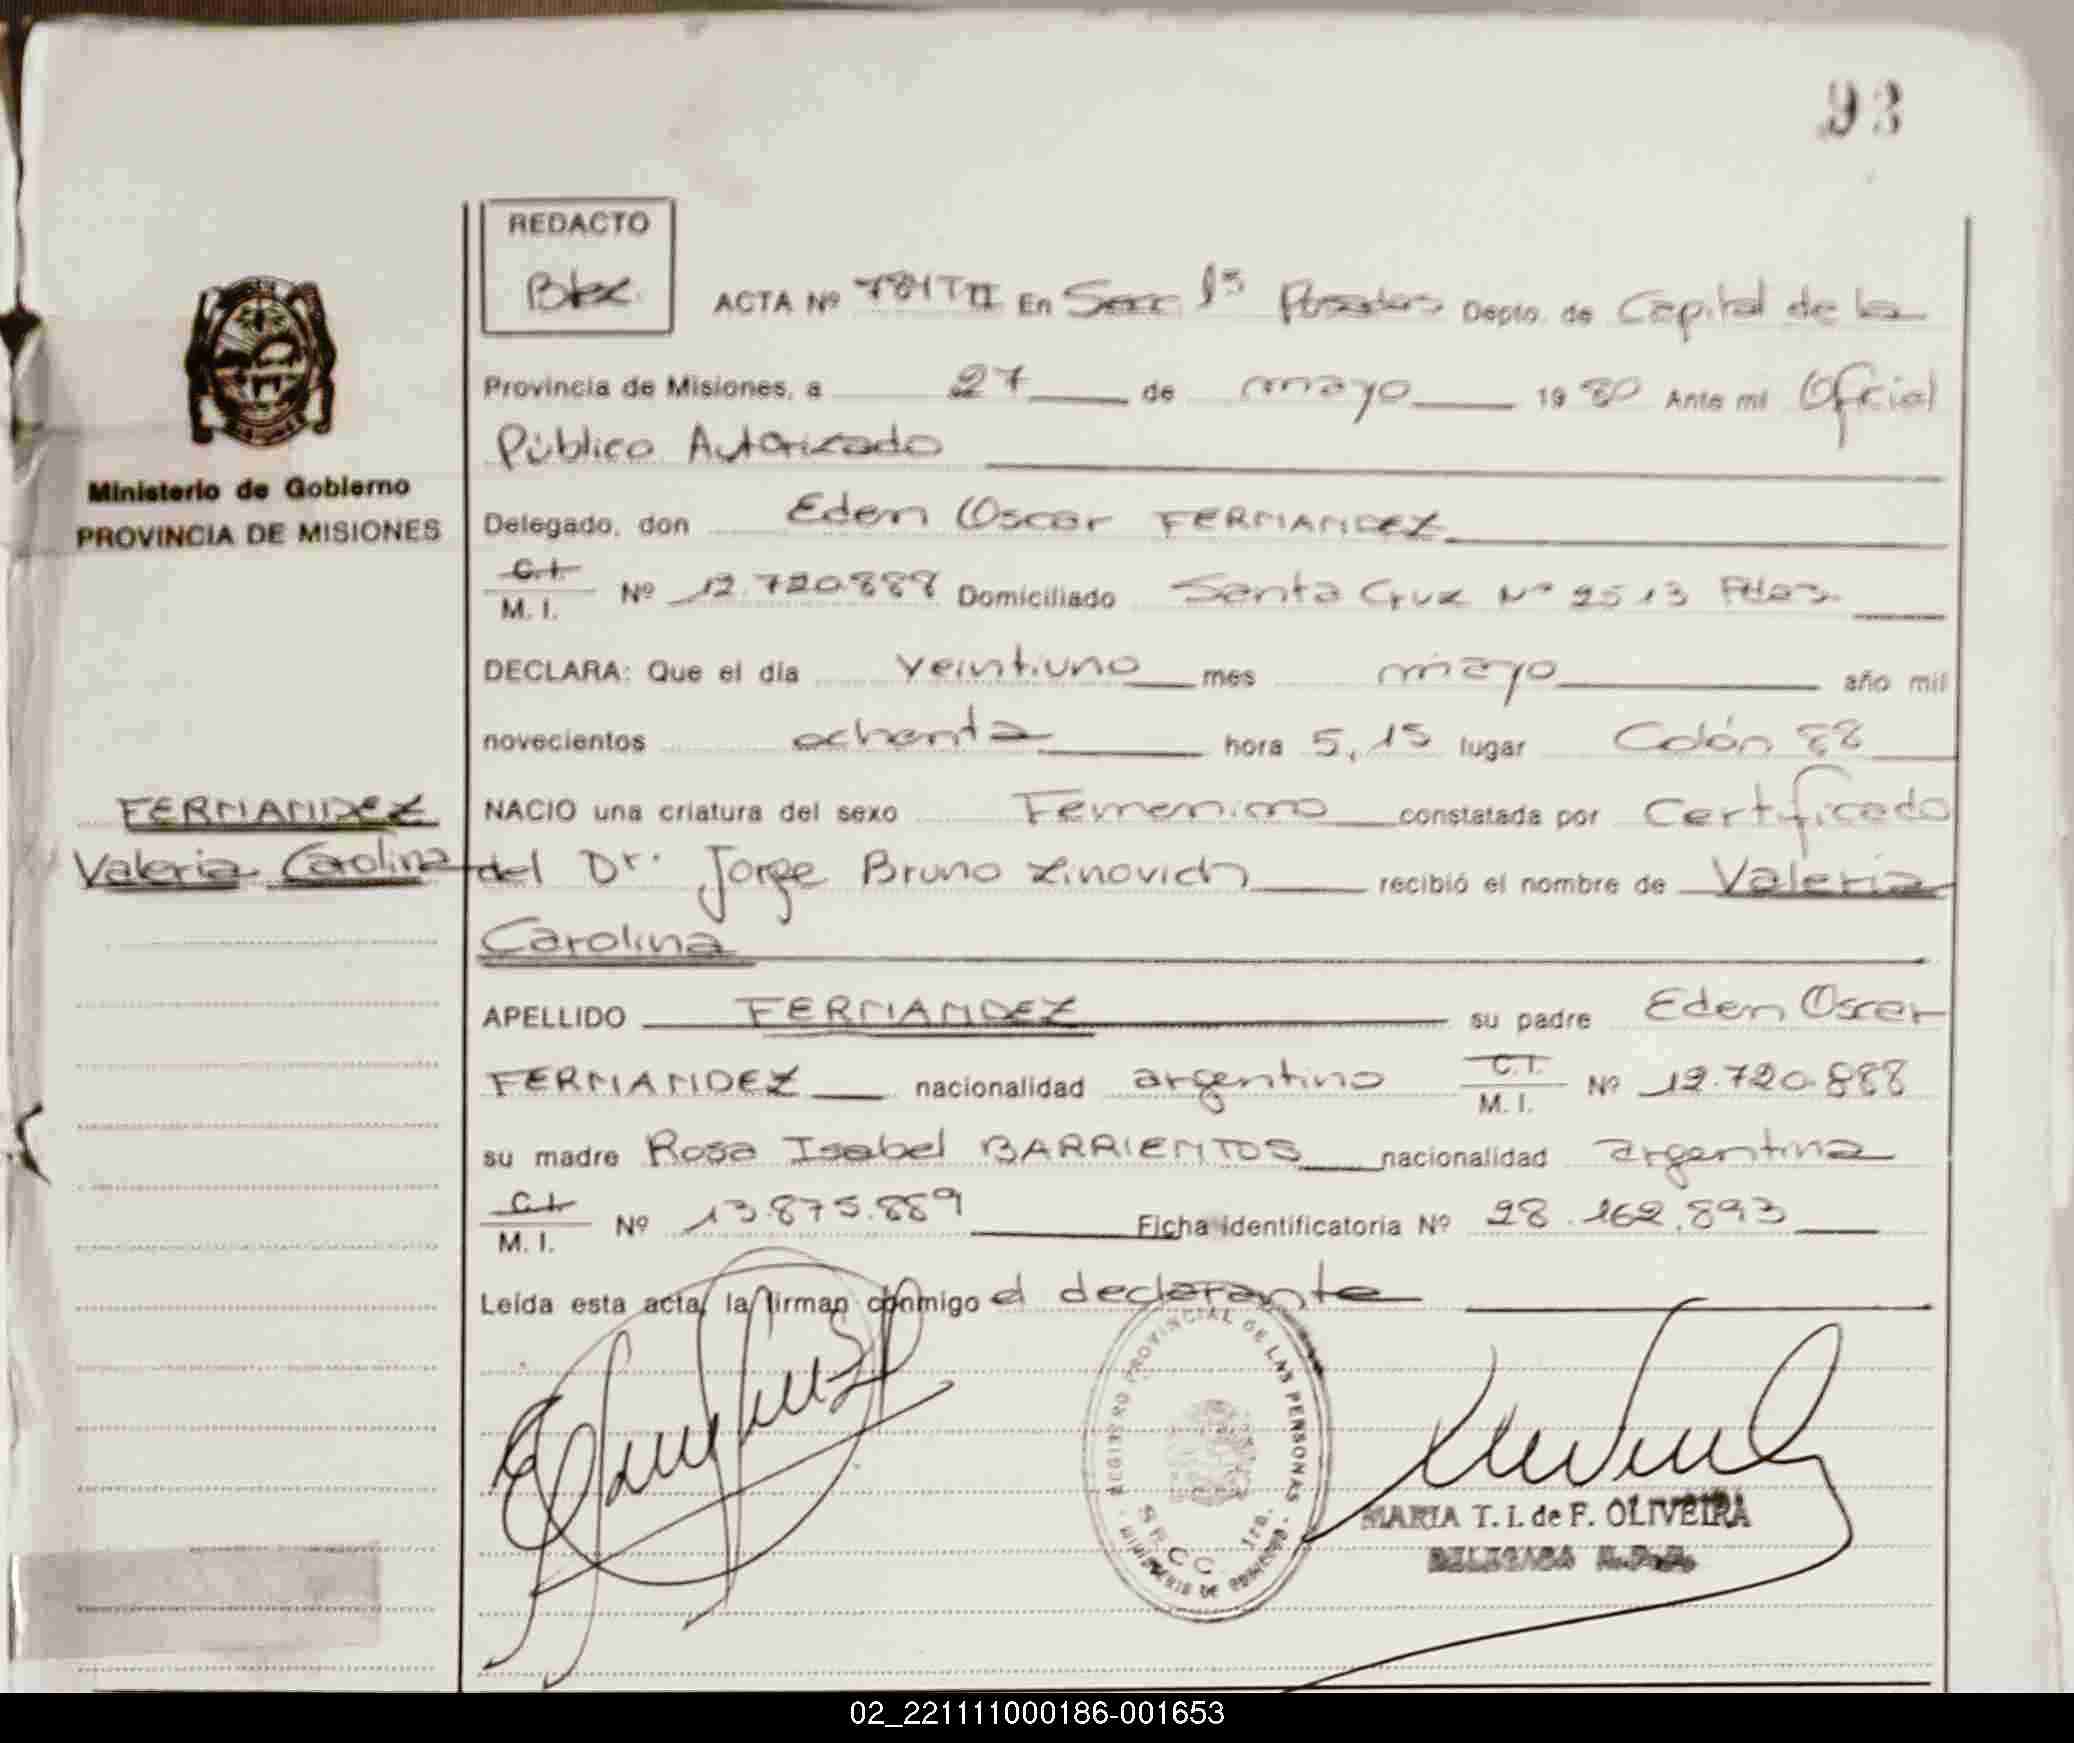 93
REDACTO
Btex.
ACTA Nº 781 T II En Secc 1ª Posadas Depto. de Capital de la
Provincia de Misiones, a 27 de mayo 1980 Ante mí Oficial
Público Autorizado
Ministerio de Gobierno
PROVINCIA DE MISIONES
Delegado, don Eden Oscar FERNANDEZ
C.I.
M. I. Nº 12.720.888 Domiciliado Santa Cruz Nº 2513 Pdas.
DECLARA: Que el día veintiuno mes mayo año mil
novecientos ochenta hora 5,15 lugar Colón 88
FERNANDEZ
NACIO una criatura del sexo Femenino constatada por Certificado
Valeria Carolina
del Dr. Jorge Bruno Zinovich recibió el nombre de Valeria
Carolina
APELLIDO FERNANDEZ su padre Eden Oscar
FERNANDEZ nacionalidad argentino C.I. M. I. Nº 12.720.888
su madre Rosa Isabel BARRIENTOS nacionalidad argentina
C.I.
M. I. Nº 13.875.889 Ficha identificatoria Nº 28.162.893
Leída esta acta, la firman conmigo el declarante
REGISTRO PROVINCIAL DE LAS PERSONAS
SECC. 1ra.
MINISTERIO DE GOBIERNO
MARIA T. I. de F. OLIVEIRA
DELEGADA R.P.P.
02_221111000186-001653